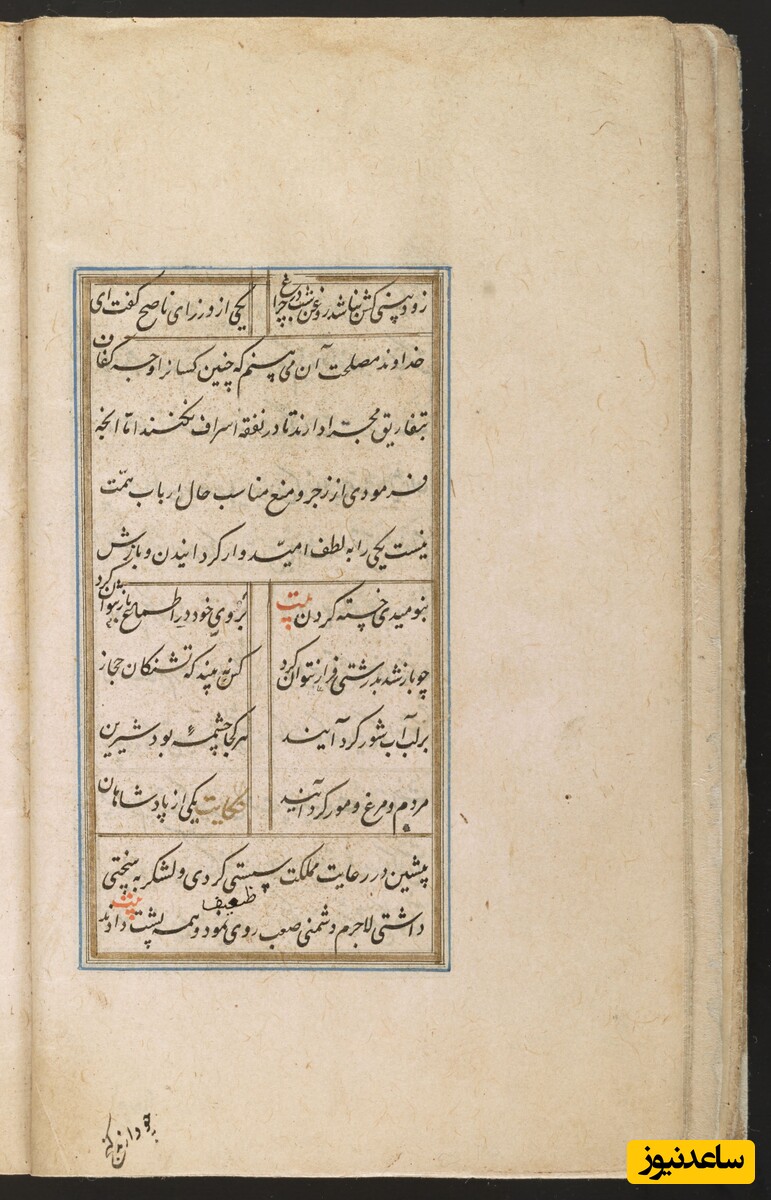 زود بینی کش نباشد روغن شب در چراغ یکی از وزرای ناصح گفت ای
خداوند مصلحت آن می بینم که چنین کسانرا وجه کفاف
بتفاریق مجرا دارند تا در نفقه اسراف نکنند اما آنچه
فرمودی از زجر و منع مناسب حال ارباب همت
نیست یکی را به لطف امیدوار گردانیدن و بازش
بنومیدی خسته کردن بیت بروی خود در اطماع باز نتوان کرد
چو باز شد بدرشتی فراز نتوان کرد کس نه بیند که تشنگان حجاز
بر لب آب شور گرد آیند هر کجا چشمه بود شیرین
مردم و مرغ و مور گرد آیند حکایت یکی از پادشاهان
پیشین در رعایت مملکت سستی کردی و لشکر به سختی
داشتی لاجرم دشمنی صعب روی نمود و همه پشت دادند
چو دارند گنج
ساعدنیوز